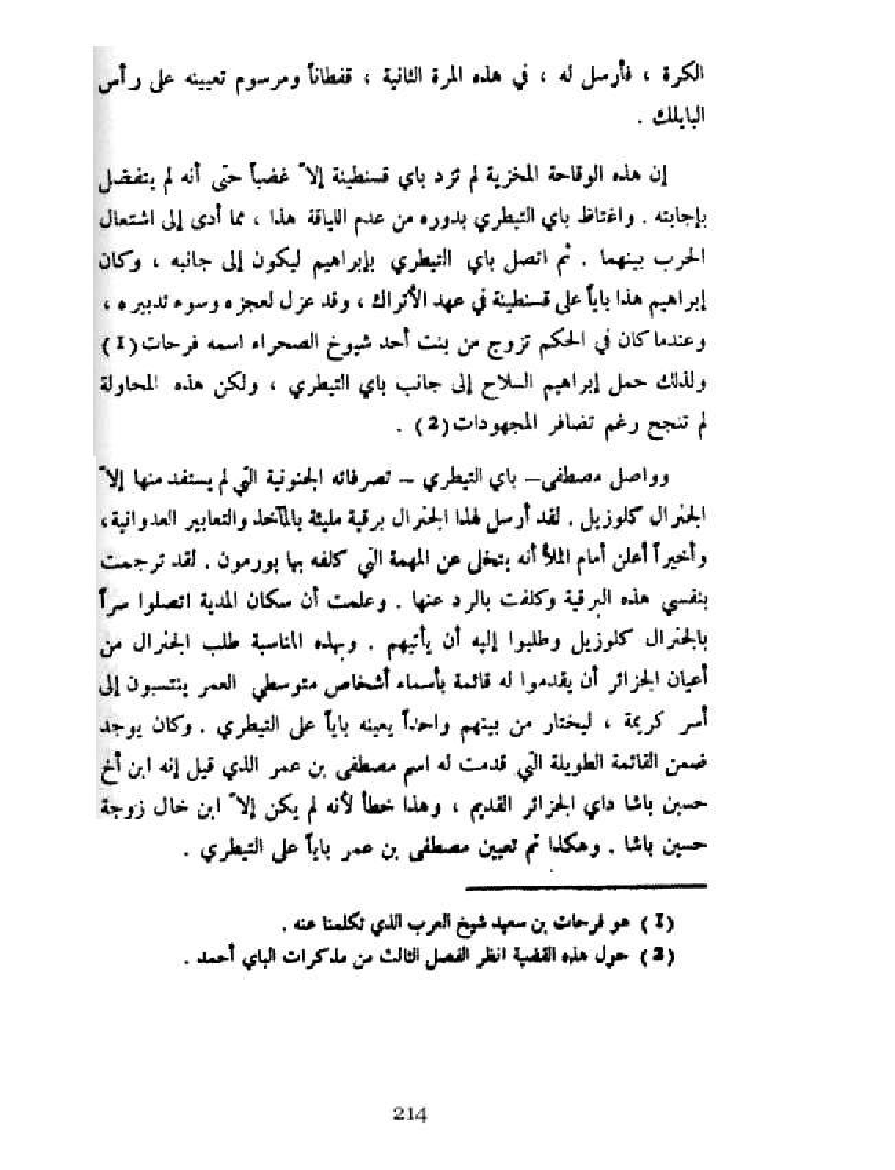 الكرة ، فأرسل له ، في هذه المرة الثانية ، قفطاناً ومرسوم تعيينه على رأس
البايلك .
إن هذه الوقاحة المخزية لم تزد باي قسنطينة إلاّ غضباً حتى أنه لم يتفضل
بإجابته . واغتاظ باي التيطري بدوره من عدم اللياقة هذا ، مما أدى إلى اشتعال
الحرب بينهما . ثم اتصل باي التيطري بإبراهيم ليكون إلى جانبه ، وكان
إبراهيم هذا باياً على قسنطينة في عهد الأتراك ، وقد عزل لعجزه وسوء تدبيره ،
وعندما كان في الحكم تزوج من بنت أحد شيوخ الصحراء اسمه فرحات (1)
ولذلك حمل إبراهيم السلاح إلى جانب باي التيطري ، ولكن هذه المحاولة
لم تنجح رغم تضافر المجهودات (2) .
وواصل مصطفى – باي التيطري – تصرفاته الجنونية التي لم يستفد منها إلاّ
الجنرال كلوزيل . لقد أرسل لهذا الجنرال برقية مليئة بالمآخذ والتعابير العدوانية ،
وأخيراً أعلن أمام الملأ أنه يتخلى عن المهمة التي كلفه بها بورمون . لقد ترجمت
بنفسي هذه البرقية وكلفت بالرد عنها . وعلمت أن سكان المدية اتصلوا سراً
بالجنرال كلوزيل وطلبوا إليه أن يأتيهم . وبهذه المناسبة طلب الجنرال من
أعيان الجزائر أن يقدموا له قائمة بأسماء أشخاص متوسطي العمر ينتسبون إلى
أسر كريمة ، ليختار من بينهم واحداً يعينه باياً على التيطري . وكان يوجد
ضمن القائمة الطويلة التي قدمت له اسم مصطفى بن عمر الذي قيل إنه ابن أخ
حسين باشا داي الجزائر القديم ، وهذا خطأ لأنه لم يكن إلاّ ابن خال زوجة
حسين باشا . وهكذا تم تعيين مصطفى بن عمر باياً على التيطري .
(1) هو فرحات بن سعيد شيخ العرب الذي تكلمنا عنه .
(2) حول هذه القضية انظر الفصل الثالث من مذكرات الباي أحمد .
214